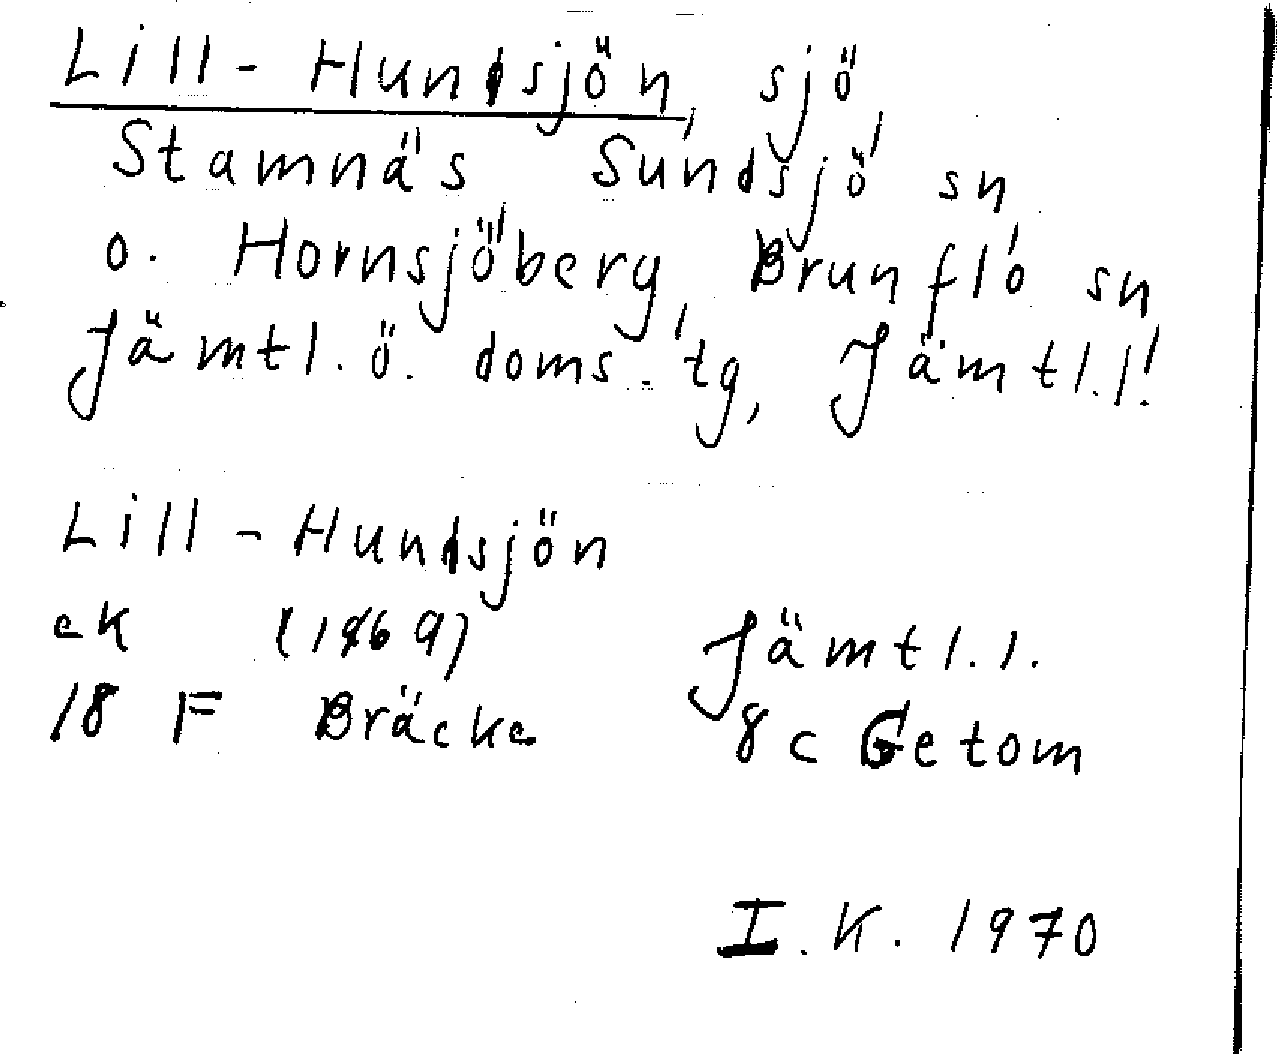 Lill-Hundsjön, sjö,
Stamnäs, Sundsjö sn,
o. Hornsjöberg, Brunflo sn
Jämtl. ö. doms. tg, Jämtl. l.
Lill-Hundsjön
ek (1969) Jämtl. l.
18 F Bräcke 8 c Getom
I. K. 1970